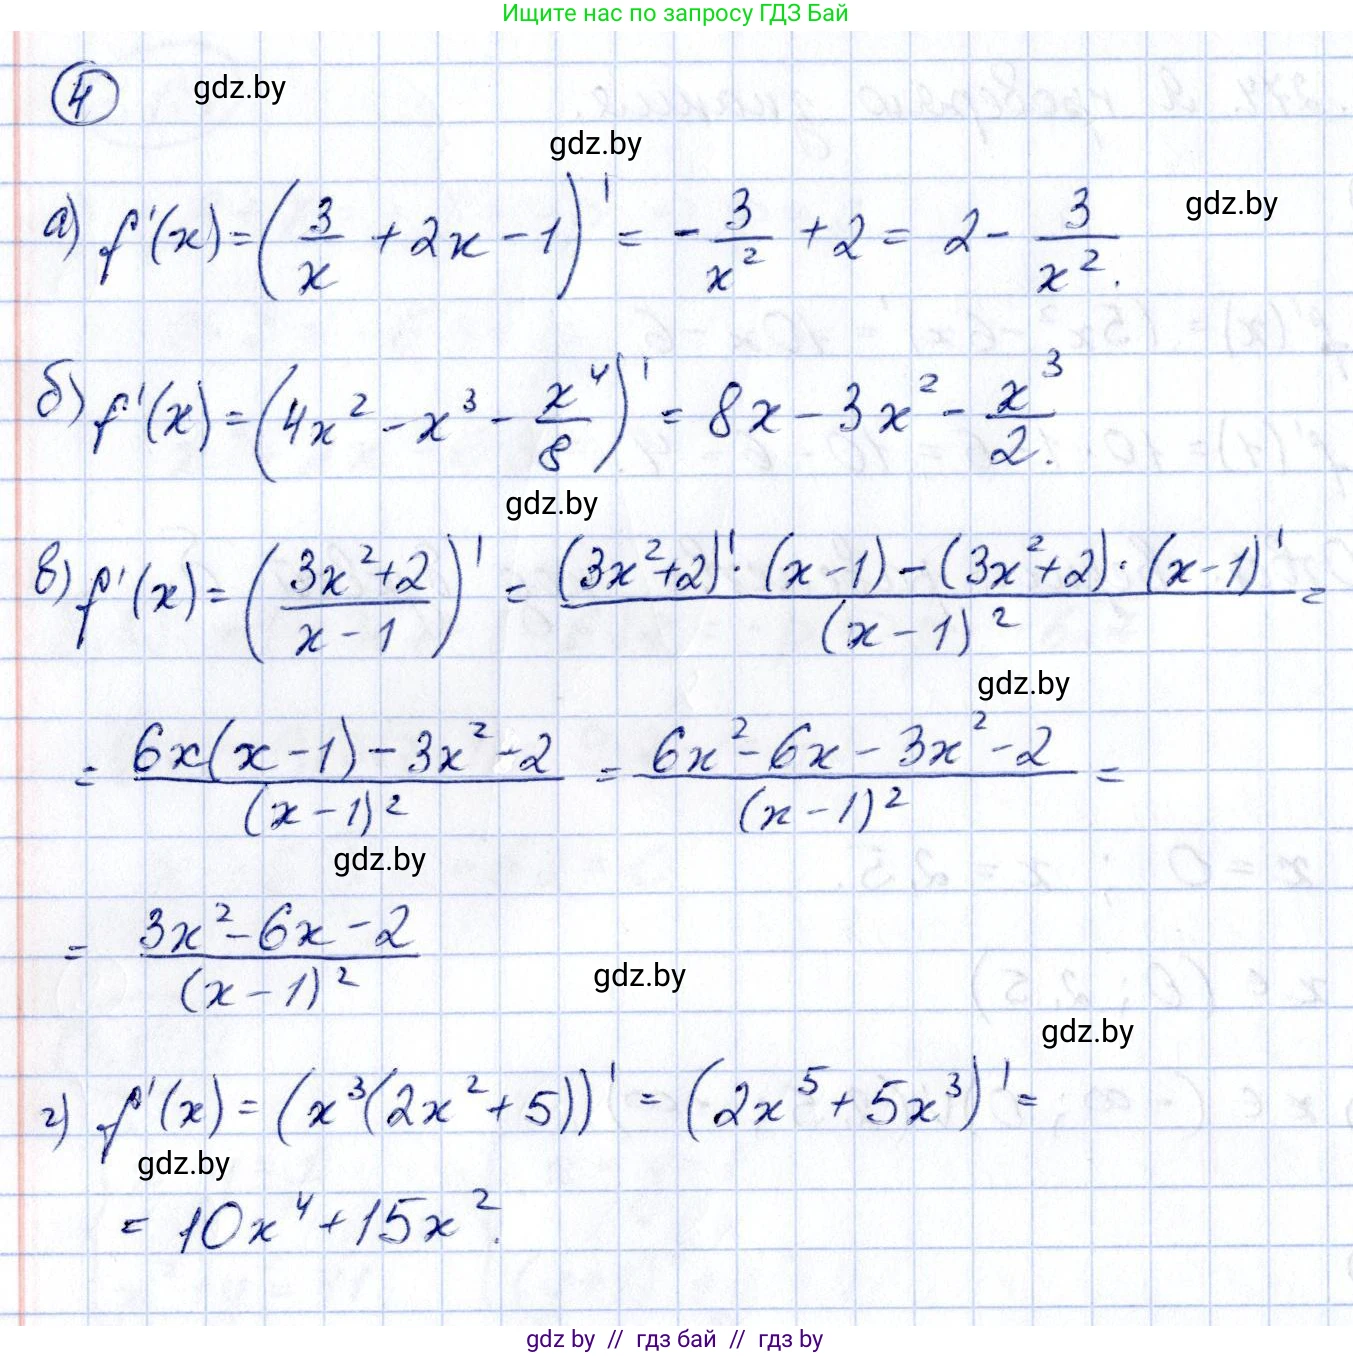 Ищите нас по запросу ГДЗ Бай
4
gdz.by
gdz.by
gdz.by
а) f'(x) = (3/x + 2x - 1)' = - 3/x² + 2 = 2 - 3/x².
б) f'(x) = (4x² - x³ - x⁴/8)' = 8x - 3x² - x³/2.
gdz.by
в) f'(x) = ((3x²+2)/(x-1))' = ((3x²+2)'·(x-1) - (3x²+2)·(x-1)')/(x-1)² =
gdz.by
= (6x(x-1) - 3x² - 2)/(x-1)² = (6x² - 6x - 3x² - 2)/(x-1)² =
gdz.by
= (3x² - 6x - 2)/(x-1)²
gdz.by
gdz.by
г) f'(x) = (x³(2x²+5))' = (2x⁵ + 5x³)' =
gdz.by
= 10x⁴ + 15x².
gdz by // гдз бай // гдз by